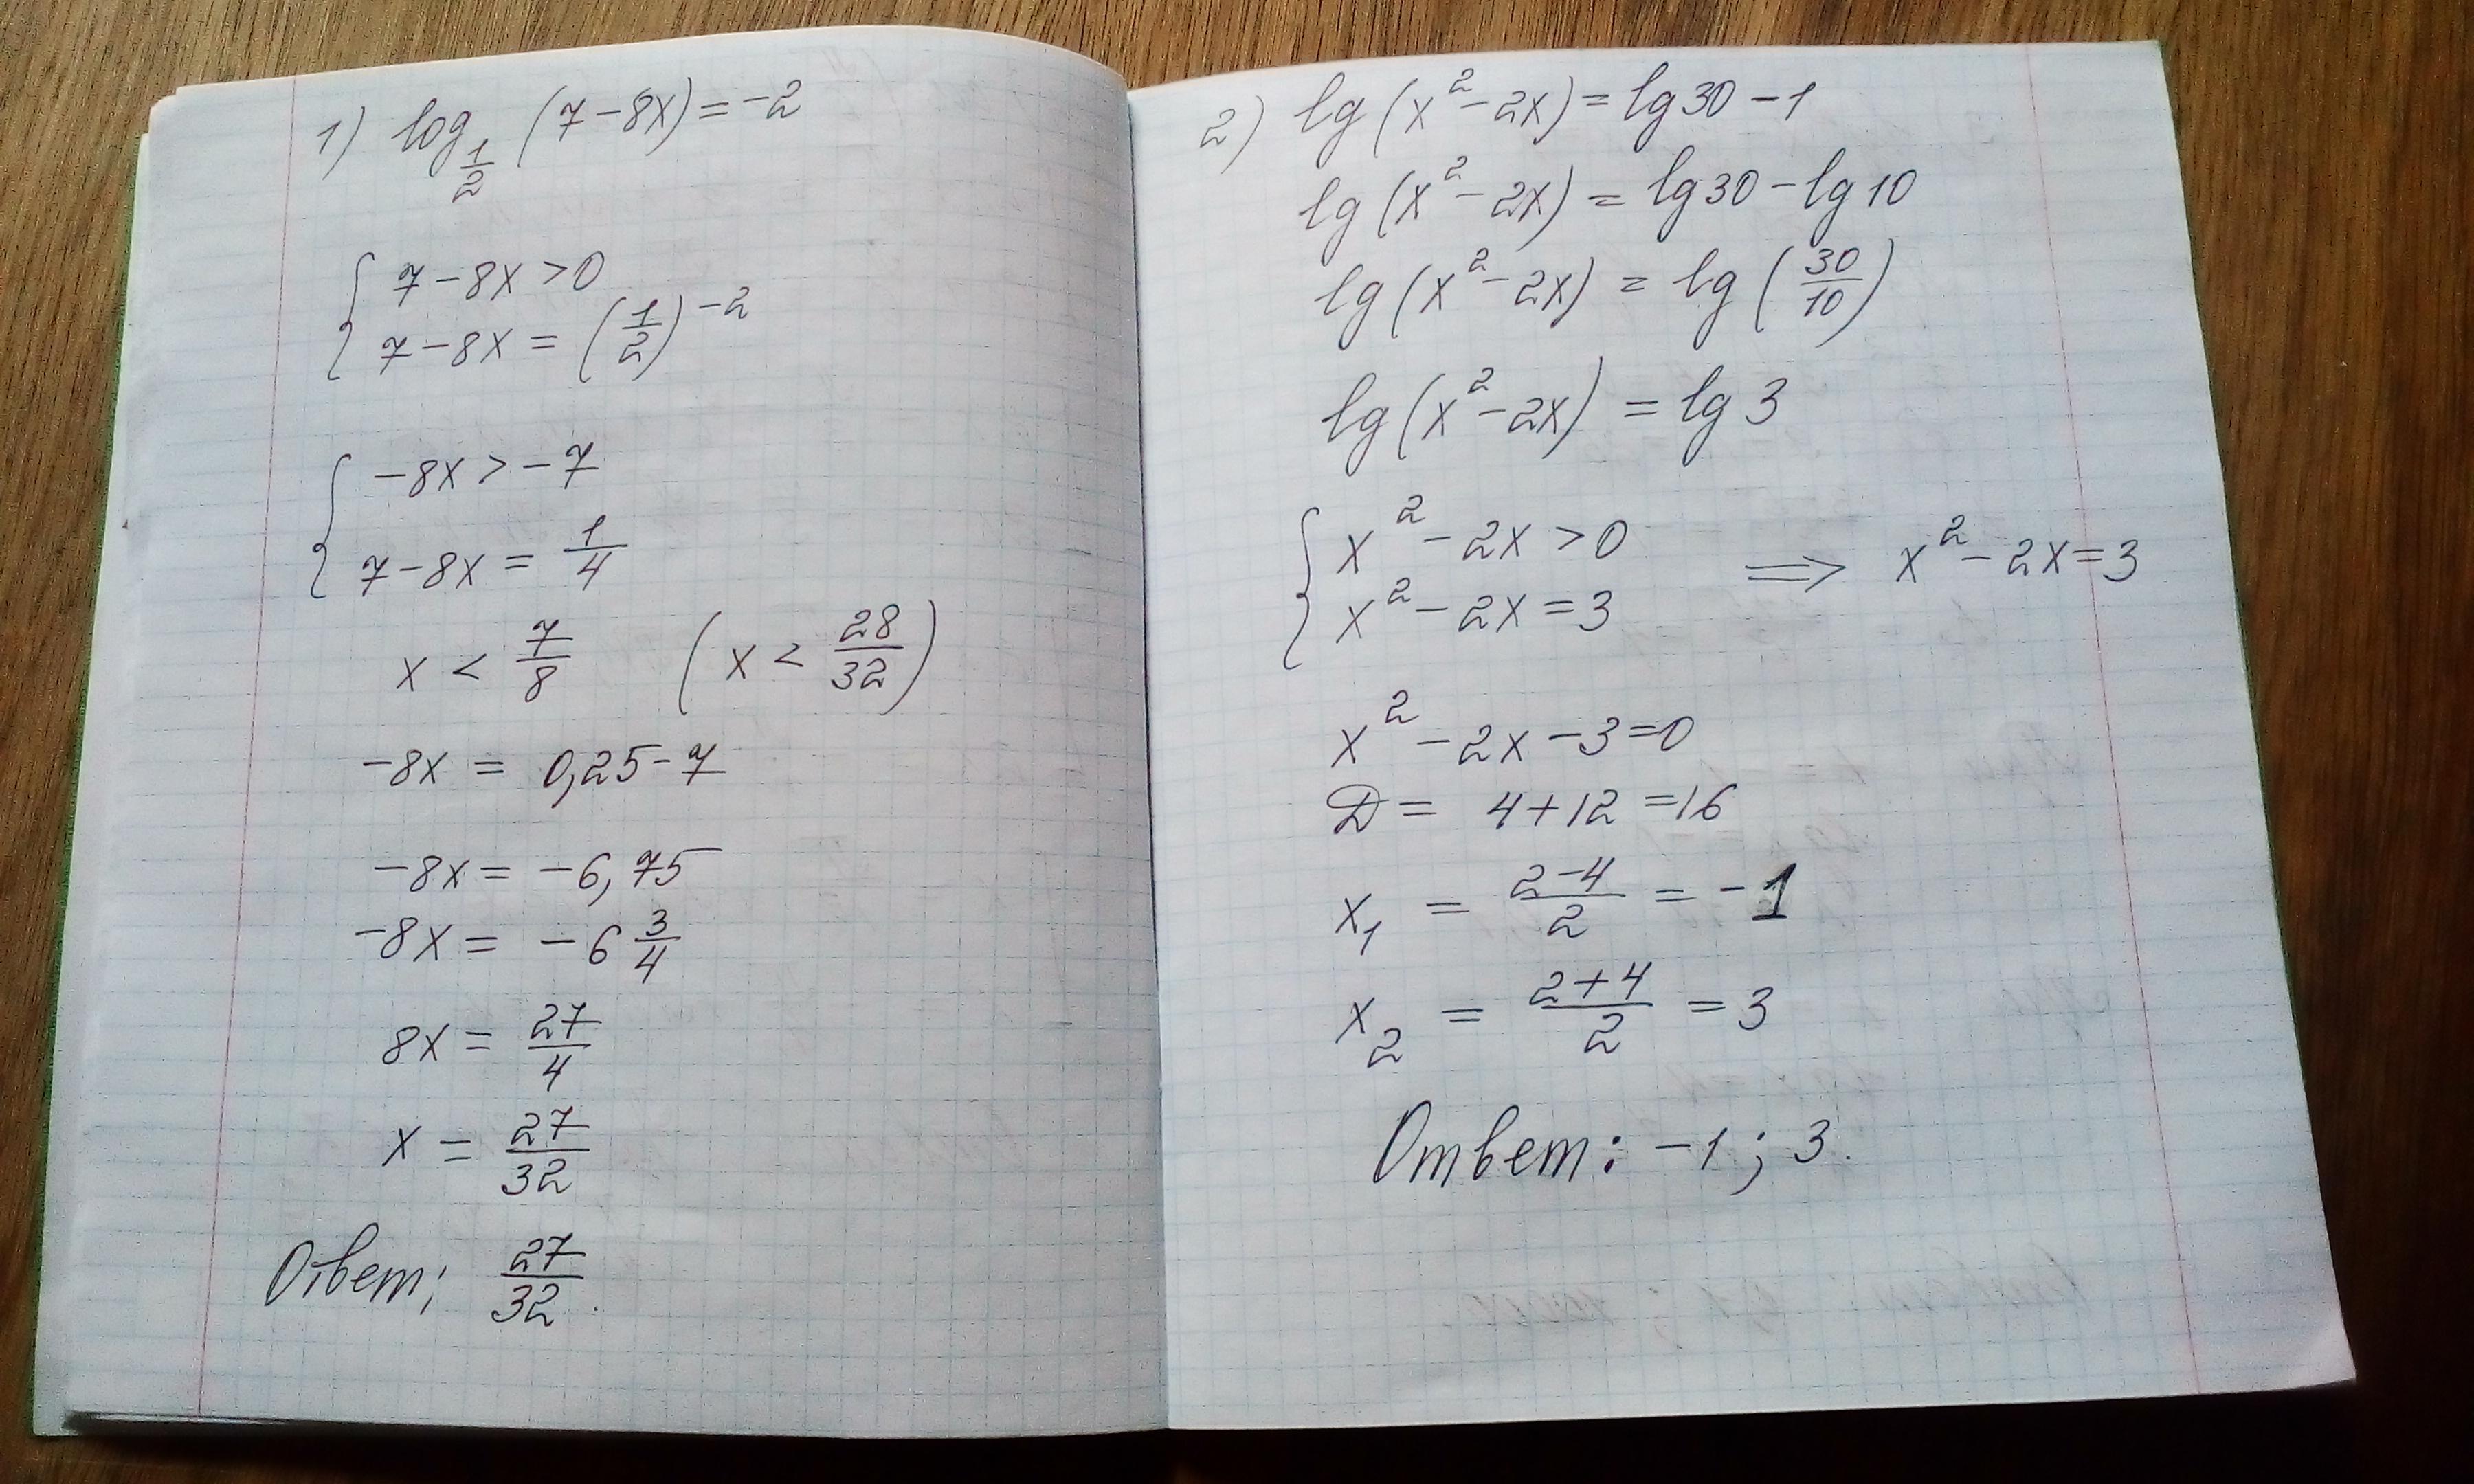 1) log_{1/2} (7-8x) = -2
{ 7-8x > 0
7-8x = (1/2)^{-2}
{ -8x > -7
7-8x = 1/4
x < 7/8 (x < 28/32)
-8x = 0,25-7
-8x = -6,75
-8x = -6 3/4
8x = 27/4
x = 27/32
Ответ; 27/32.
2) lg(x²-2x) = lg30-1
lg(x²-2x) = lg30-lg10
lg(x²-2x) = lg(30/10)
lg(x²-2x) = lg3
{ x²-2x > 0
x²-2x = 3 ⟹ x²-2x = 3
x²-2x-3=0
D = 4+12 = 16
x₁ = (2-4)/2 = -1
x₂ = (2+4)/2 = 3
Ответ: -1; 3.